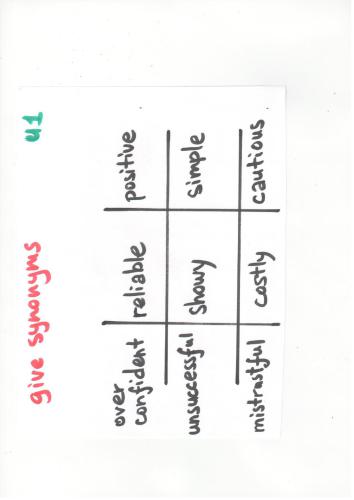 give synonyms u1
over confident reliable positive
unsuccessful showy simple
mistrustful costly cautious